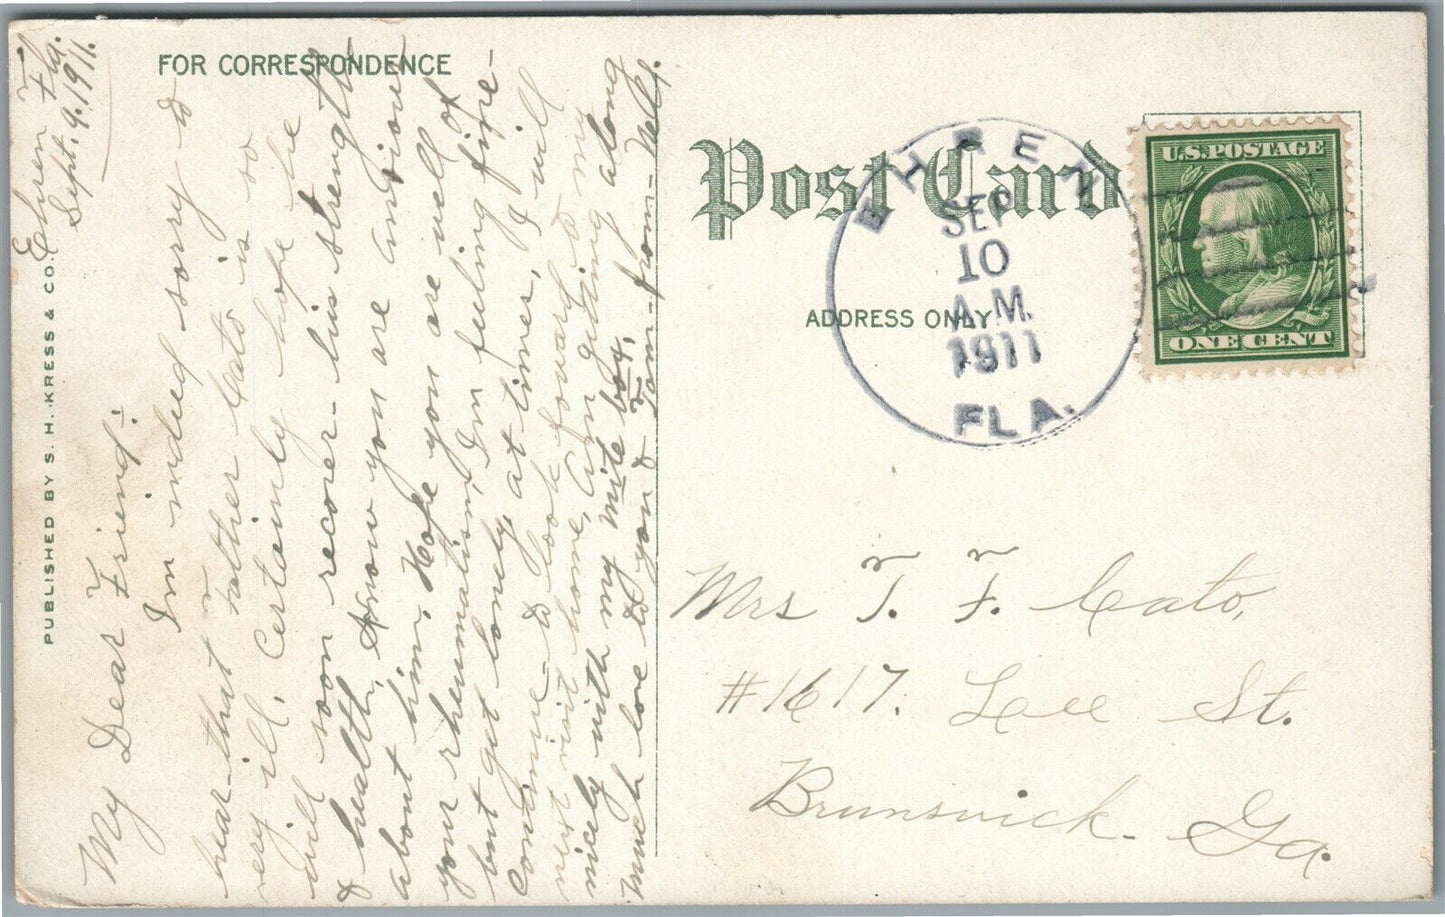 FOR CORRESPONDENCE
Ehren Fla.
Sept. 9. 1911.
My Dear Friend:
Im indeed sorry to
hear that father Cato is so
very ill. Certainly hope he
will soon recover his strength
& health. Know you are anxious
about him. Hope you are well of
your rheumatism, Im feeling fine-
but get lonely at times, I will
continue to look forward to my
next visit home, Am getting along
nicely with my mite box.
Much love to you & Tom - from - Nell.
PUBLISHED BY S. H. KRESS & CO.
Post Card
ADDRESS ONLY
EHREN
SEP
10
A.M.
1911
FLA.
U.S. POSTAGE
ONE CENT
Mrs T. F. Cato,
#1617. Lee St.
Brunswick. Ga.